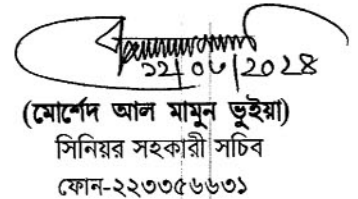 ২২|০৮|২০২৪
(মোর্শেদ আল মামুন ভুইয়া)
সিনিয়র সহকারী সচিব
ফোন-২২৩৩৫৬৬৩১